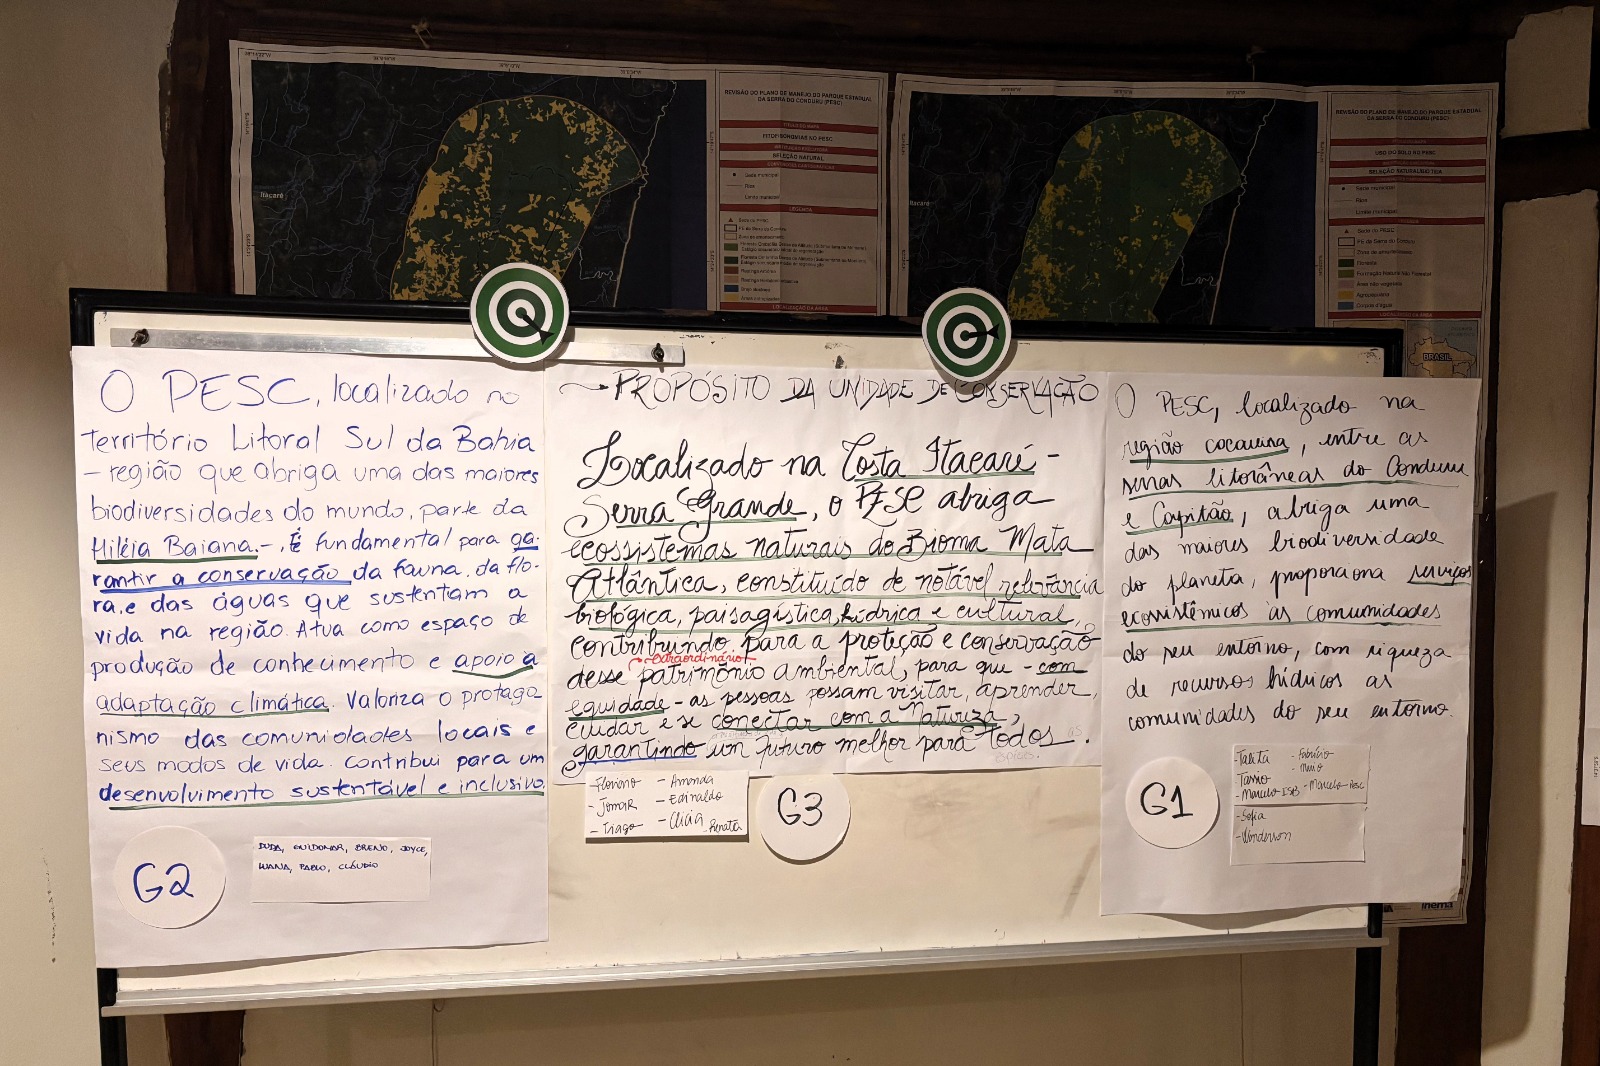 REVISÃO DO PLANO DE MANEJO DO PARQUE ESTADUAL
DA SERRA DO CONDURU (PESC)
TÍTULO DO MAPA
FITOFISIONOMIAS NO PESC
SELEÇÃO NATURAL
Sede municipal
Rios
Limite municipal
LEGENDA
Sede do PESC
PE da Serra do Conduru
LOCALIZAÇÃO DA ÁREA
Itacaré
REVISÃO DO PLANO DE MANEJO DO PARQUE ESTADUAL
DA SERRA DO CONDURU (PESC)
USO DO SOLO NO PESC
Sede municipal
Rios
Limite municipal
Sede do PESC
PE da Serra do Conduru
Floresta
Formação Natural Não Florestal
Área não vegetada
Agropecuária
Corpos d'água
Itacaré
BRASIL
O PESC, localizado no
Território Litoral Sul da Bahia
– região que abriga uma das maiores
biodiversidades do mundo, parte da
Hiléia Baiana –, é fundamental para ga-
rantir a conservação da fauna, da flo-
ra, e das águas que sustentam a
vida na região. Atua como espaço de
produção de conhecimento e apoio a
adaptação climática. Valoriza o protago
nismo das comunidades locais e
seus modos de vida. Contribui para um
desenvolvimento sustentável e inclusivo.
G2
DUDA, GUIDOMAR, BRENO, JOYCE,
LUANA, PABLO, CLÁUDIO
PROPÓSITO DA UNIDADE DE CONSERVAÇÃO
Localizado na Costa Itacaré -
Serra Grande, o PESC abriga
ecossistemas naturais do Bioma Mata
Atlântica, constituído de notável relevância
biológica, paisagística, hídrica e cultural,
contribuindo para a proteção e conservação
extraordinário
desse patrimônio ambiental, para que - com
equidade - as pessoas possam visitar, aprender,
cuidar e se conectar com a Natureza,
garantindo um futuro melhor para todos.
- Floriano - Amanda
- Jomar - Edinaldo
- Tiago - Clicia Renata
G3
O PESC, localizado na
região cacaueira, entre as
serras litorâneas do Conduru
e Capitão, abriga uma
das maiores biodiversidade
do planeta, proporciona serviços
ecossistêmicos às comunidades
do seu entorno, com riqueza
de recursos hídricos as
comunidades do seu entorno.
G1
- Talita - Fabrício
Tássio
- Marcelo - Marcelo PESC
- Sofia
- Wanderson
inema